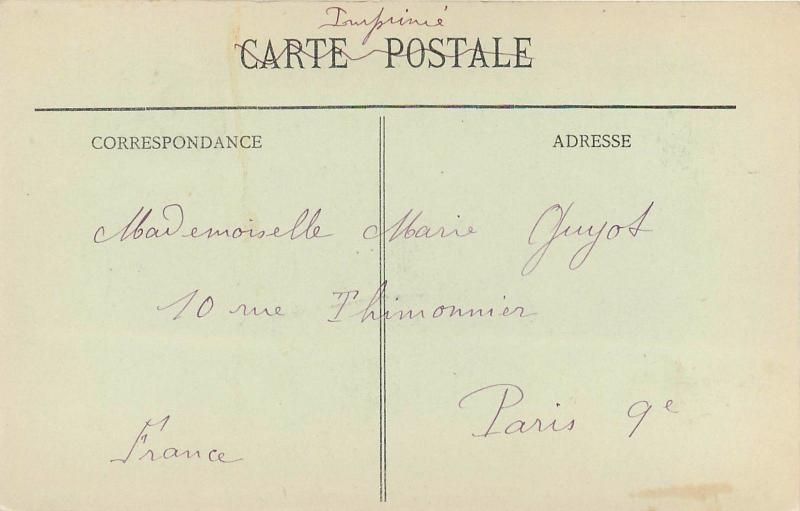 Imprimé
CARTE POSTALE
CORRESPONDANCE
ADRESSE
Mademoiselle Marie Guyot
10 rue Thimonnier
Paris 9e
France